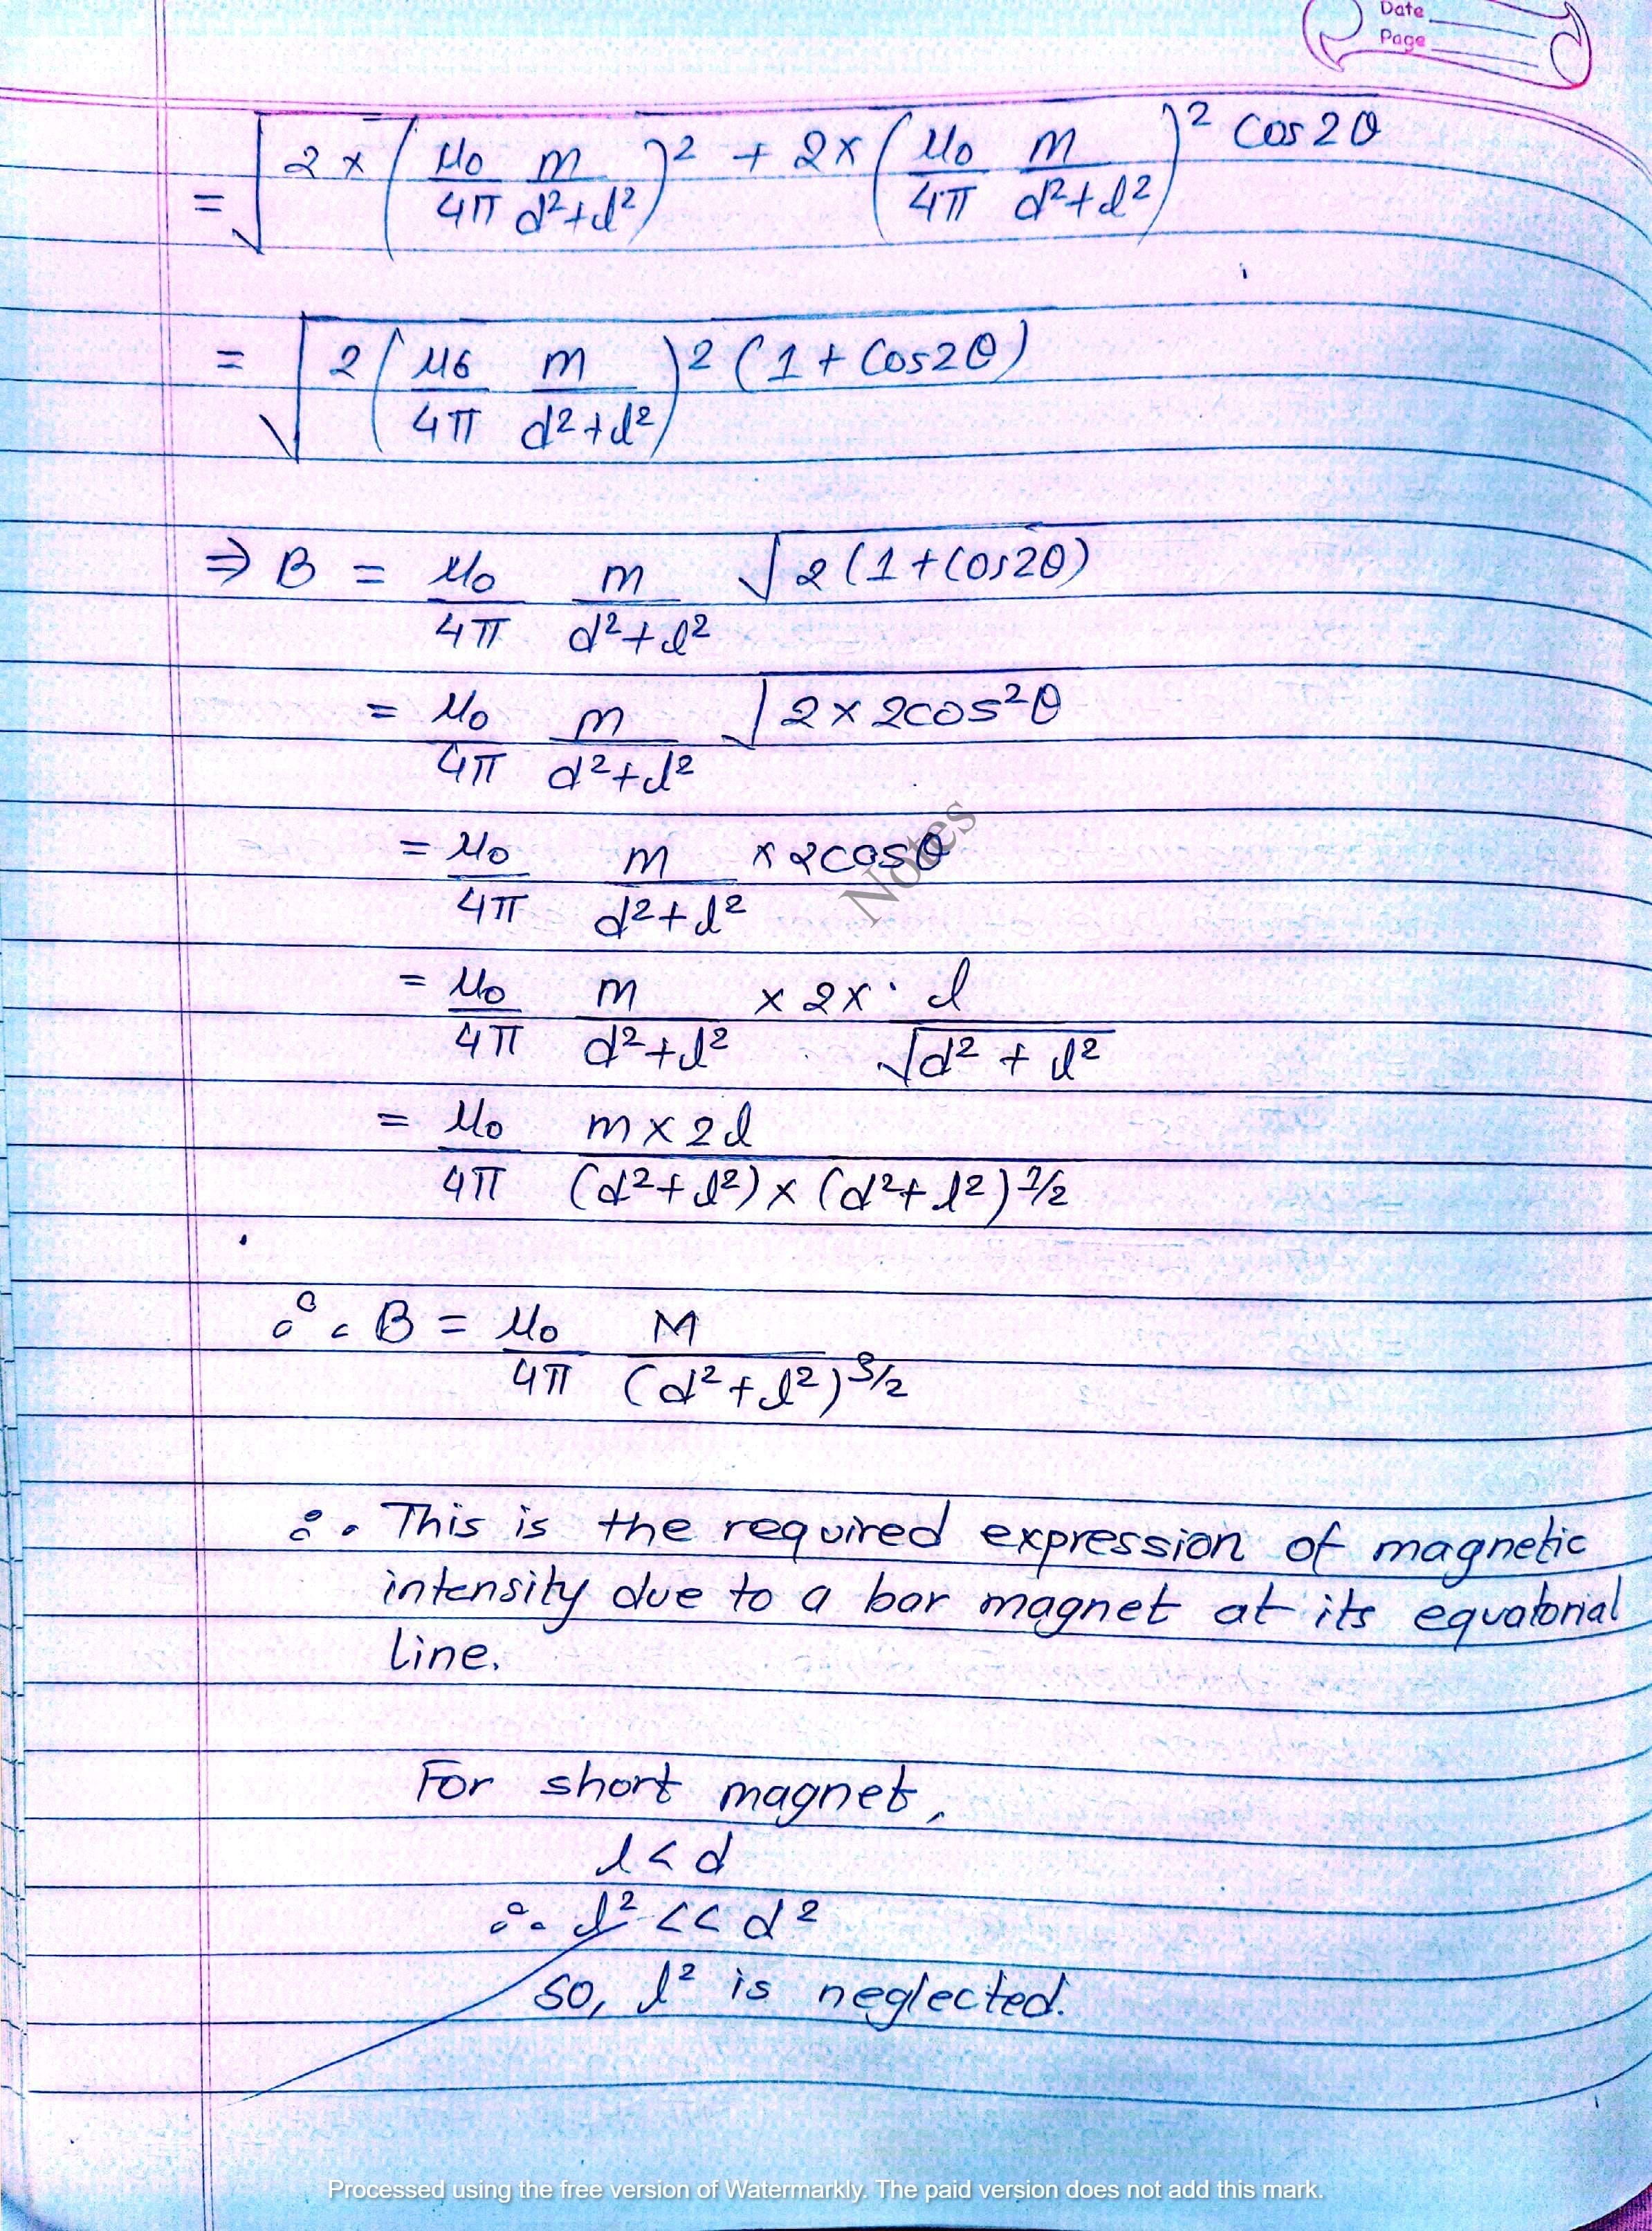 Date
Page
= √2 × (μ₀/4π m/d²+l²)² + 2× (μ₀/4π m/d²+l²)² cos2θ
= √2 (μ₀/4π m/d²+l²)² (1 + cos2θ)
⇒ B = μ₀/4π m/d²+l² √2(1+cos2θ)
= μ₀/4π m/d²+l² √2 × 2cos²θ
= μ₀/4π m/d²+l² × 2cosθ
= μ₀/4π m/d²+l² × 2× l/√d² + l²
= μ₀/4π m × 2l/(d²+l²) × (d²+l²)^1/2
∴ B = μ₀/4π M/(d²+l²)^3/2
∴ This is the required expression of magnetic
intensity due to a bar magnet at its equatorial
line.
For short magnet,
l < d
∴ l² << d²
so, l² is neglected.
Notes
Processed using the free version of Watermarkly. The paid version does not add this mark.